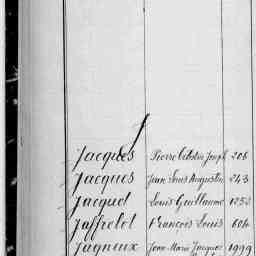 J
Jacques Pierre Célestin Joseph 206
Jacques Jean Louis Augustin 243
Jacquet Louis Guillaume 1253
Jaffrelot François Louis 604
Jagneux Jean Marie Jacques 1999